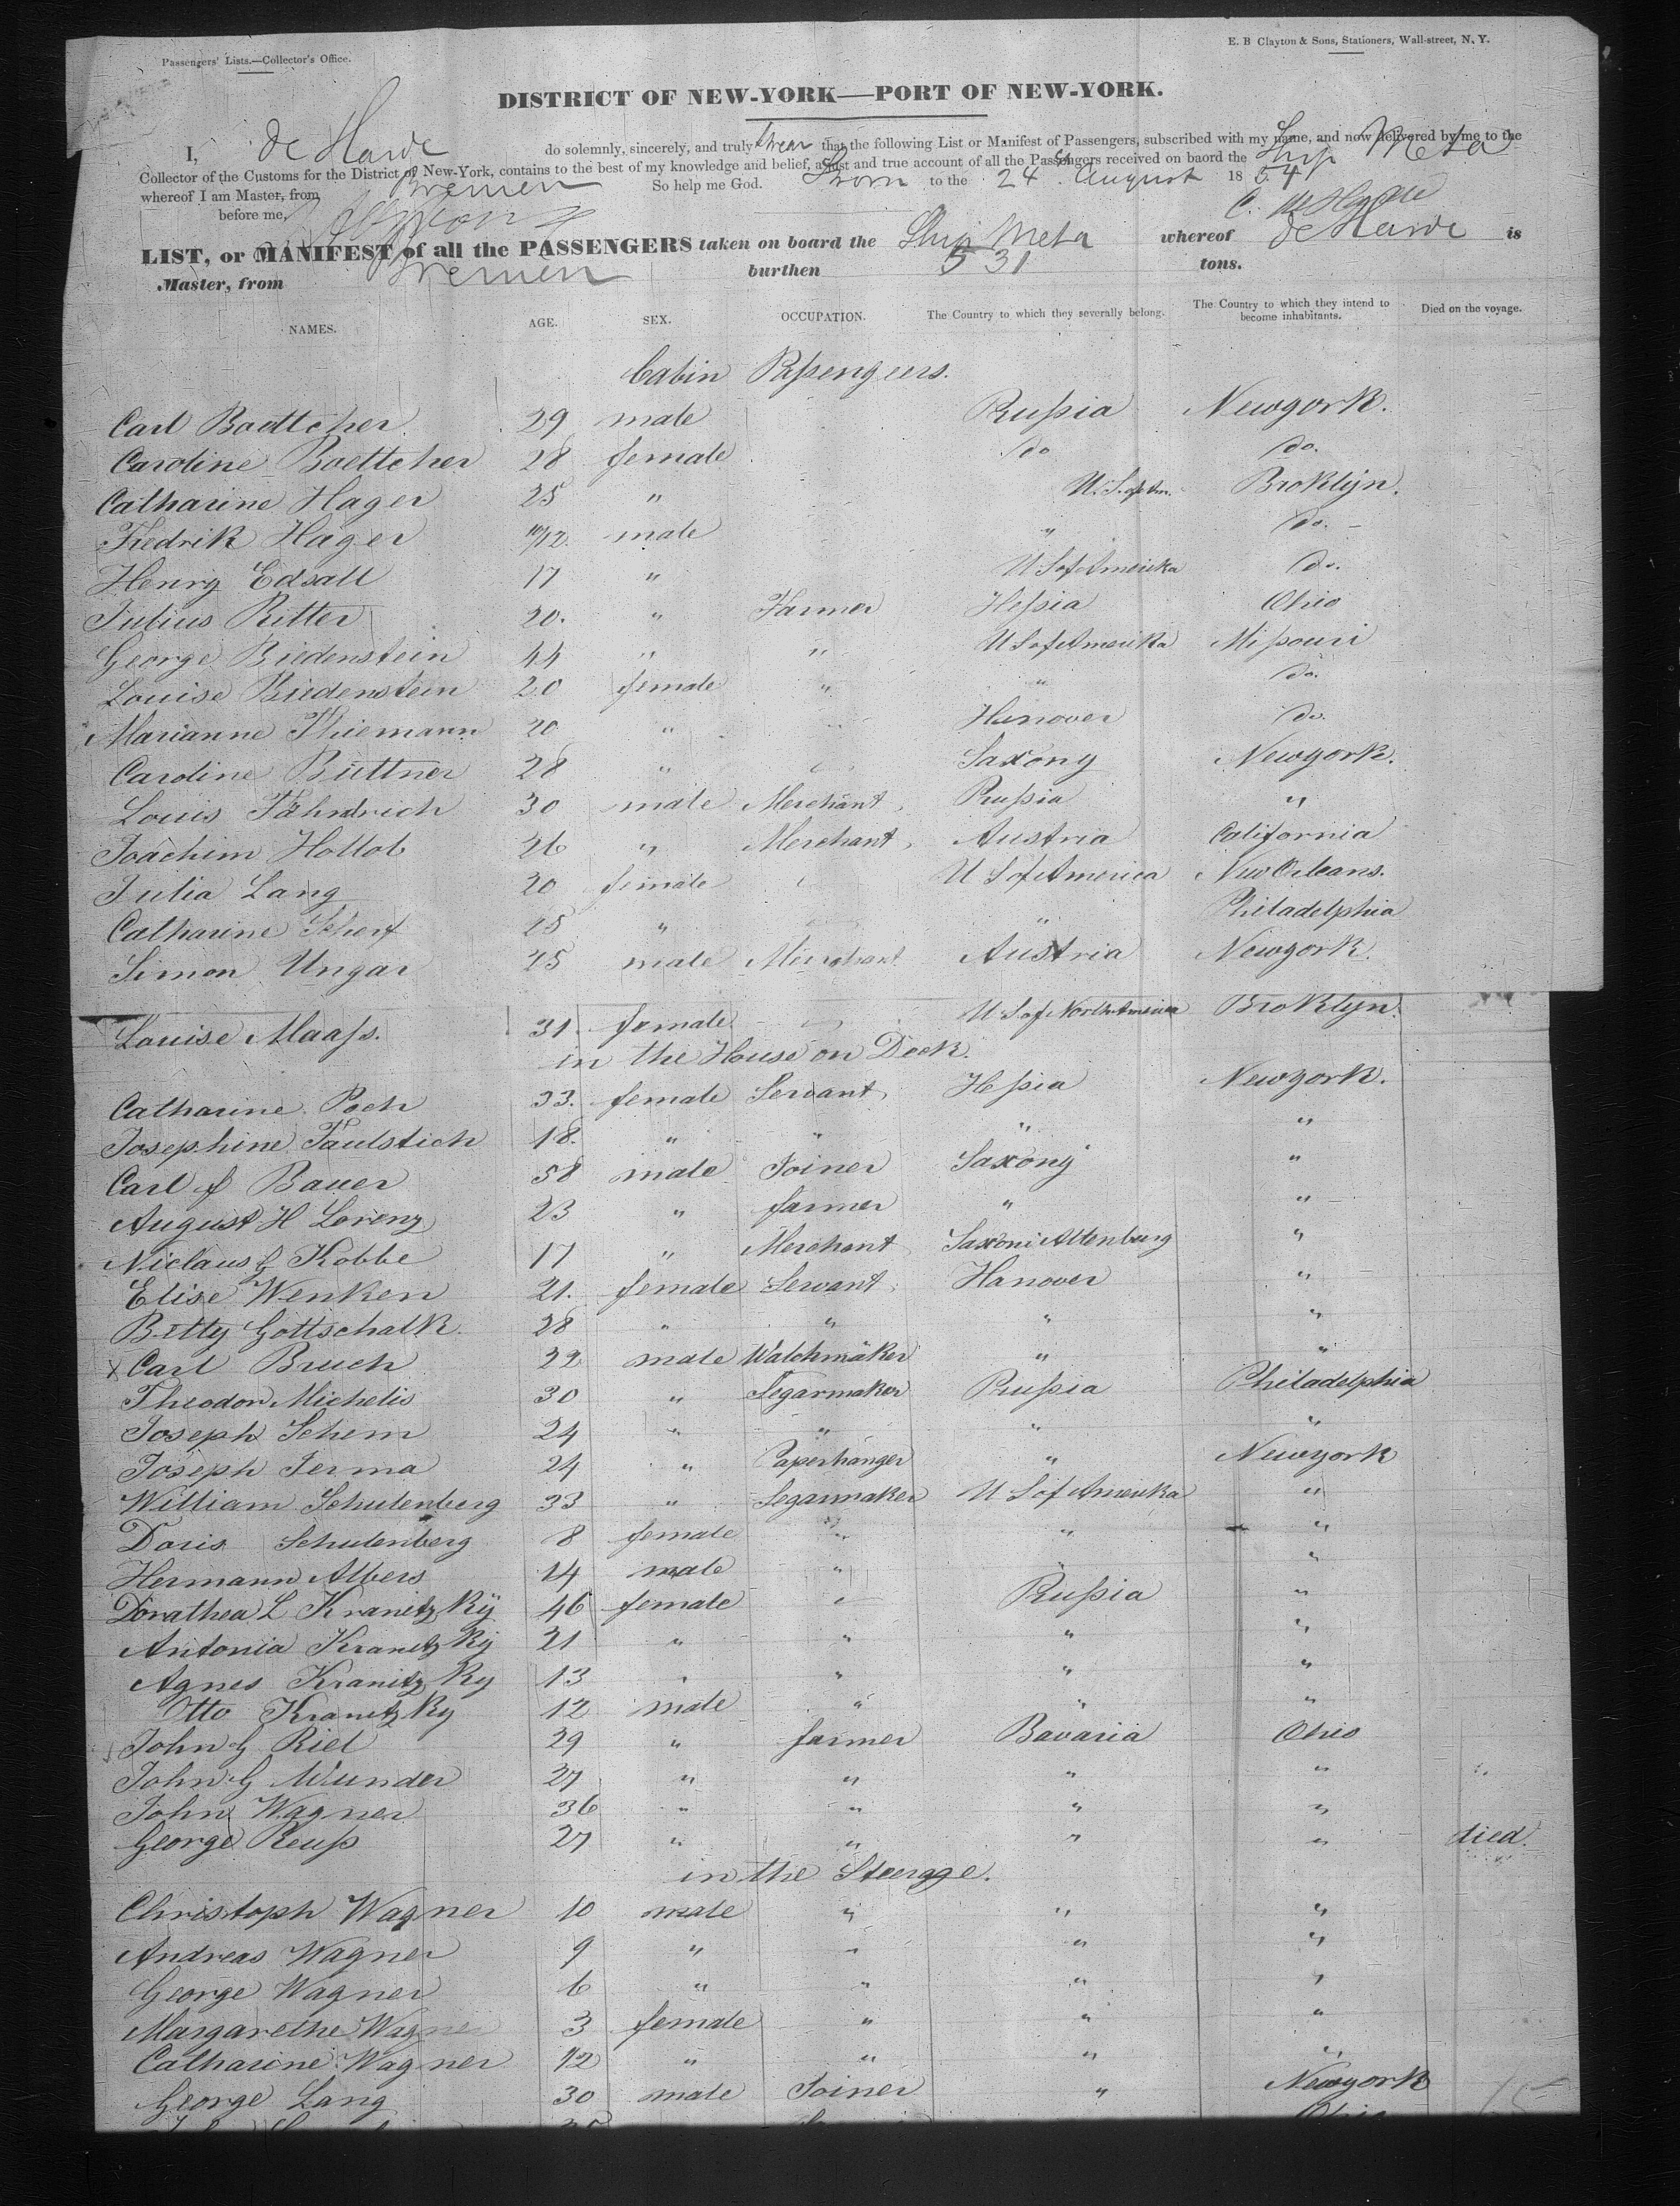 Passengers' Lists.—Collector's Office.
E. B Clayton & Sons, Stationers, Wall-street, N. Y.
DISTRICT OF NEW-YORK—PORT OF NEW-YORK.
I, De Harde do solemnly, sincerely, and truly swear that the following List or Manifest of Passengers, subscribed with my name, and now delivered by me to the
Collector of the Customs for the District of New-York, contains to the best of my knowledge and belief, a just and true account of all the Passengers received on baord the Ship Meta
whereof I am Master, from Bremen So help me God. Sworn to the 24 August 1854
before me,
LIST, or MANIFEST of all the PASSENGERS taken on board the Ship Meta whereof De Harde is
Master, from Bremen burthen 531 tons.
NAMES. AGE. SEX. OCCUPATION. The Country to which they severally belong. The Country to which they intend to become inhabitants. Died on the voyage.
Cabin Passengers.
Carl Boettcher 29 male Prussia Newyork.
Caroline Boettcher 28 female do do.
Catharine Hager 25 " U. S. of Am. Broklyn.
Fredrik Hager 10/12 male " do.
Henry Edsall 17 " U S of Amerika do.
Julius Ritter 20. " Farmer Hessia Ohio
George Biedenstein 44 " " U S of Amerika Missouri
Louise Biedenstein 20 female " " do.
Marianne Thiemann 20 " Hanover do.
Caroline Büttner 28 " Saxony Newyork.
Louis Fähndrich 30 male Merchant Prussia "
Joachim Hollob 26 " Merchant Austria California
Julia Lang 20 female U S of America New Orleans.
Catharine Scherf 25 " " Philadelphia
Simon Ungar 25 male Merchant Austria Newyork.
Louise Maass. 31. female U S of North America Broklyn.
in the House on Deck.
Catharine Poch 33. female Servant Hessia Newyork.
Josephine Faulstich 18. " " " "
Carl F Bauer 58 male Joiner Saxony "
August H Lorenz 23 " farmer " "
Niclaus G Kobbe 17 " Merchant Saxoni Altenburg "
Elise Wenken 21. female Servant Hanover "
Betty Gottschalk. 28 " " " "
x Carl Bruch 22 male Watchmäker " "
Theodor Michelis 30 " Segarmaker Prussia Philadelphia
Joseph Schem 24 " " " "
Joseph Jerma 24 " Paperhanger " Newyork
William Schulenberg 33 " Segarmaker U S of Amerika "
Doris Schulenberg 8 female " " "
Hermann Albers 14 male " " "
Dorathea L Kranetzky 46 female " Prussia "
Antonia Kranetzky 21 " " " "
Agnes Kranitzky 13 " " " "
Otto Kranetzky 12 male " " "
John G Riel 29 " farmer Bavaria Ohio
John G Wunder 27 " " " "
John Wagner 36 " " " "
George Reuss 27 " " " " died.
in the Steerage.
Christoph Wagner 10 male " " "
Andreas Wagner 9 " " " "
George Wagner 6 " " " "
Margarethe Wagner 3 female " " "
Catharine Wagner 1/2 " " " "
George Lang 30 male Joiner " Newyork